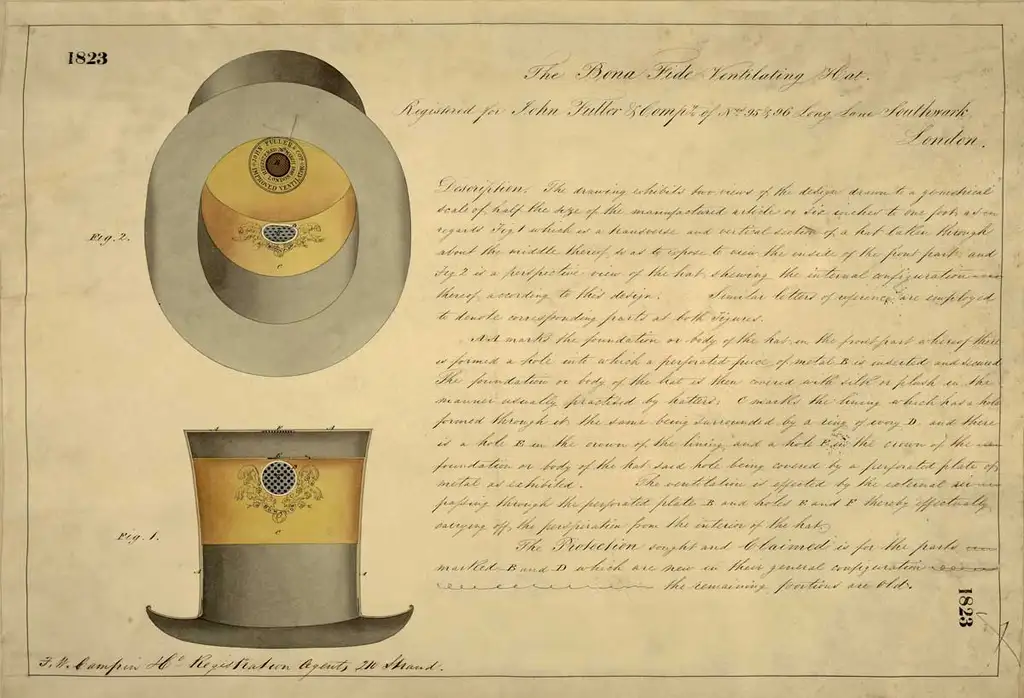 1823
The Bona Fide Ventilating Hat.
Registered for John Fuller & Compy. of Nos. 95 & 96 Long Lane Southwark
London.
Description: The drawing exhibits two views of the design drawn to a geometrical
scale of half the size of the manufactured article or six inches to one foot, as
regards Fig 1 which is a transverse and vertical section of a hat taken through
about the middle thereof, so as to expose to view the inside of the front part and
Fig 2 is a perspective view of the hat shewing the internal configuration
thereof, according to this design. Similar letters of reference are employed
to denote corresponding parts in both Figures.
AA marks the foundation or body of the hat in the front part whereof there
is formed a hole into which a perforated piece of metal B is inserted and secured
The foundation or body of the hat is then covered with silk or plush in the
manner usually practised by hatters. C marks the lining which has a hole
formed through it the same being surrounded by a ring of ivory D, and there
is a hole E in the crown of the lining and a hole F in the crown of the
foundation or body of the hat said hole being covered by a perforated plate of
metal as exhibited. The ventilation is effected by the external air
passing through the perforated plate B and holes E and F thereby effectually
carrying off the perspiration from the interior of the hat.
The Protection sought and Claimed is for the parts
marked B and D which are new in their general configuration
the remaining portions are Old.
Fig. 2.
JOHN FULLER & COY
IMPROVED VENTILATOR
LONDON
C
Fig. 1.
A
A
C
A
A
1823
F. W. Campin Hd. Registration Agents, 210 Strand.